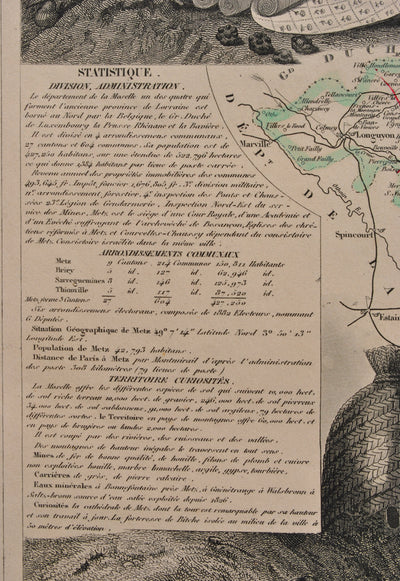 STATISTIQUE.
DIVISION, ADMINISTRATION.
Le département de la Moselle un des quatre qui
forment l'ancienne province de Lorraine est
borné au Nord par la Belgique, le Gr. Duché
Luxembourg la Prusse Rhénane et la Bavière.
Il est divisé en 4 arrondissemens communaux.
27 cantons et 604 communes. Sa population est de
427,250 habitans, sur une étendue de 532,796 hectares
ce qui donne habitans par lieue de poste carrée.
Revenu annuel des propriétés immobilières des communes
493,645 fr. Impôt foncier fr. 3e division militaire
arrondissement forestier, 4e inspection des Ponts et Chaus-
sées 23e Légion de Gendarmerie. Inspection Nord-Est du ser-
vice des Mines, Metz est le siège d'une Cour Royale, d'une Académie et
d'un Evêché suffragant de l'archevêché de Besançon, Eglises des chré-
tiens réformés à Metz et Courcelles-Chaussy dépendant du consistoire
de Metz. Consistoire israélite dans la même ville.
ARRONDISSEMENTS COMMUNAUX
Metz 9 Cantons 214 Communes 150,811 Habitants
Briey 5 id. 127 id. 62,946 id.
Sarreguemines 8 id. 146 id. 125,973 id.
Thionville 5 id. 117 id. 87,520 id.
Metz forme 3 Cantons 27 604 427,250
Six arrondissemens électoraux, composés de 1882 Electeurs, nomment
6 Députés.
Situation Géographique de Metz 49° 7' 14" Latitude Nord 3° 50' 13"
Longitude Est.
Population de Metz 42,793 habitans.
Distance de Paris à Metz par Montmirail d'après l'administration
des poste 308 kilomètres (79 lieues de poste)
TERRITOIRE CURIOSITÉS.
La Moselle offre les différentes espèces de sol qui suivent 10,000 hect.
de sol riche terreau 10,000 hect. de gravier, 246,000 hect. de sol pierreux
34,000 hect. de sol sablonneux, 91,000 hect. de sol argileux, 79 hectares de
différentes sortes. le Territoire en pays de montagnes offre 60,000 hect. et
en pays de bruyères ou landes 2,000 hectares.
Il est coupé par des rivières, des ruisseaux et des vallées.
Des montagnes de hauteur inégales le traversent en tout sens.
Mines de fer de bonne qualité, de houille, filons de plomb et cuivre
non exploitées houille, marbre lumachelle, argile, gypse, tourbière,
Carrières de grès, de pierre calcaire.
Eaux minérales à Bonnefontaine près Metz, à Guénétrange à Walsbronn à
Saltz-bronn source d'eau salée exploitée depuis 1806.
Curiosités la cathédrale de Metz dont la tour est remarquable par sa hauteur
et son travail à jour. La forteresse de Bitche isolée au milieu de la ville à
50 mètres d'élévation.
Gd. DUCH
DÉPT. DE
Marville
Villers le Rond
Petit Failly
Grand Failly
Colmey
Tellancourt
Longuyon
Spincourt
Etain